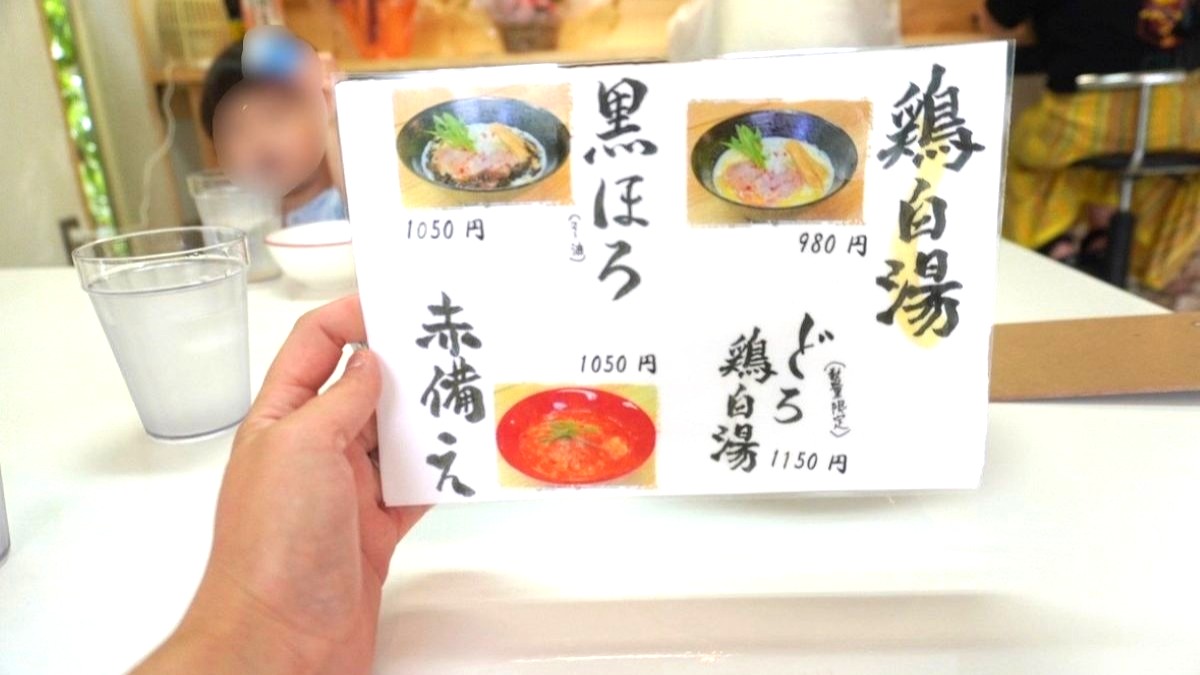 鶏白湯
980 円
どろ
(数量限定)
鶏白湯
1150 円
黒ほろ
(マー油)
1050 円
赤備え
1050 円